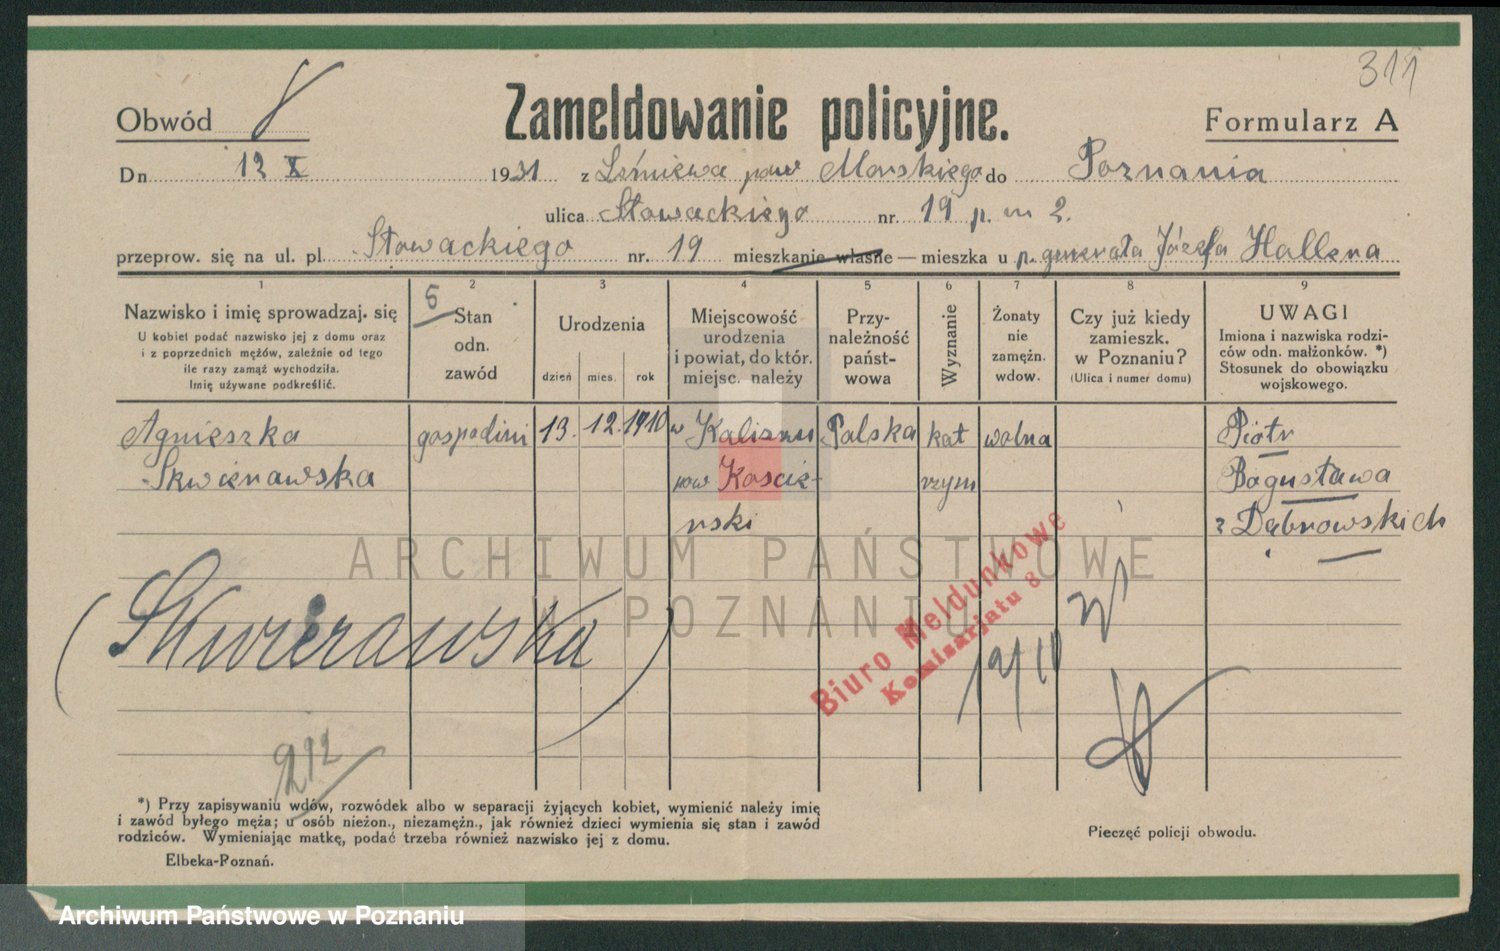 311
Obwód 8 Zameldowanie policyjne. Formularz A
Dn. 12 X 1931 z Leśniewa pow Morskiego do Poznania
ulica Słowackiego nr. 19 p. m 2.
przeprow. się na ul. pl. Słowackiego nr. 19 mieszkanie własne — mieszka u p. generała Józefa Hallena
1 2 3 4 5 6 7 8 9
Nazwisko i imię sprowadzaj. się
U kobiet podać nazwisko jej z domu oraz
i z poprzednich mężów, zależnie od tego
ile razy zamąż wychodziła.
Imię używane podkreślić.
5
Stan
odn.
zawód
Urodzenia
dzień mies. rok
Miejscowość
urodzenia
i powiat, do któr.
miejsc. należy
Przy-
należność
państ-
wowa
Wyznanie
Żonaty
nie
zamężn.
wdow.
Czy już kiedy
zamieszk.
w Poznaniu?
(Ulica i numer domu)
UWAGI
Imiona i nazwiska rodzi-
ców odn. małżonków. *)
Stosunek do obowiązku
wojskowego.
Agnieszka gospodini 13. 12. 1910 w Kaliszu Polska kat wolna Piotr
Skwierawska pow Koście- rzym Bogusława
rski z Dąbrowskich
ARCHIWUM PAŃSTWOWE
W POZNANIU
(Skwierawska)
Biuro Meldunkowe
Komisarjatu 8
212
*) Przy zapisywaniu wdów, rozwódek albo w separacji żyjących kobiet, wymienić należy imię
i zawód byłego męża; u osób nieżon., niezamężn., jak również dzieci wymienia się stan i zawód
rodziców. Wymieniając matkę, podać trzeba również nazwisko jej z domu.
Pieczęć policji obwodu.
Elbeka-Poznań.
Archiwum Państwowe w Poznaniu